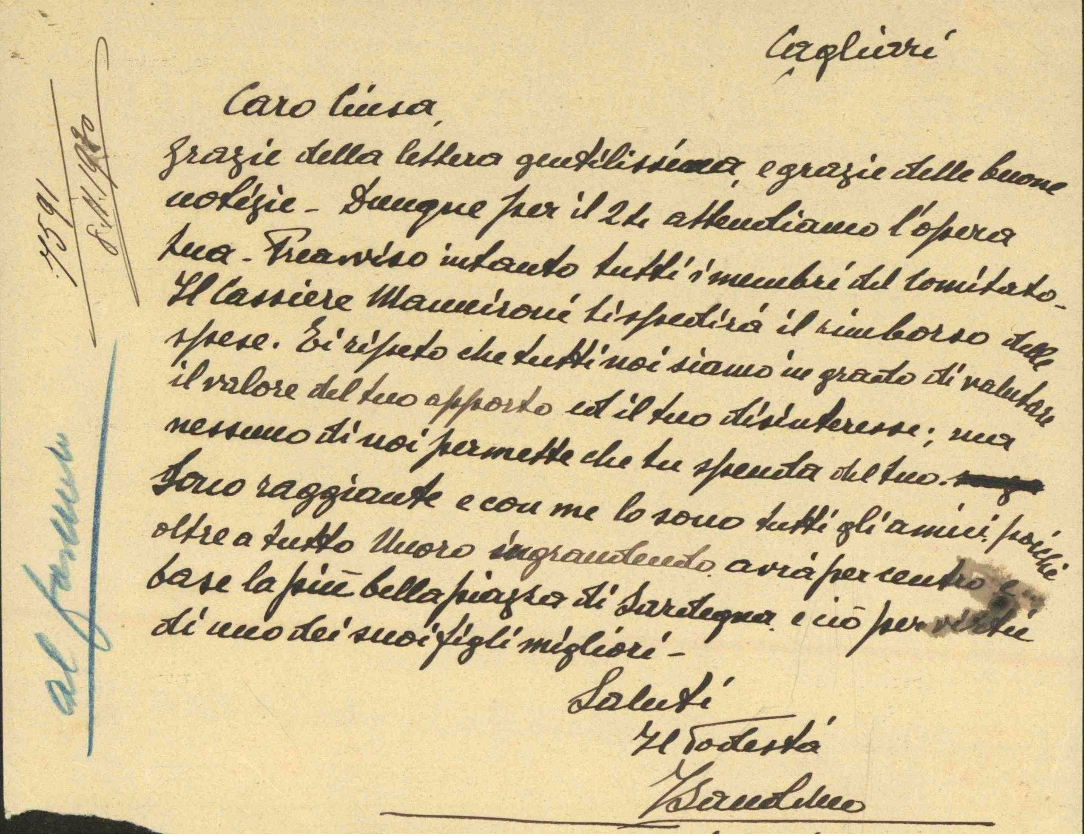 Cagliari
Caro Ciusa,
Grazie della lettera gentilissima, e grazie delle buone
notizie - Dunque per il 24 attendiamo l'opera
tua - Preavviso intanto tutti i membri del Comitato -
Il Cassiere Mannironi ti spedirà il rimborso delle
spese. Ti ripeto che tutti noi siamo in grado di valutare
il valore del tuo apporto ed il tuo disinteresse; ma
nessuno di noi permette che tu spenda del tuo.
Sono raggiante e con me lo sono tutti gli amici, poiché
oltre a tutto Nuoro ingrandendo avrà per centro e
base la più bella piazza di Sardegna e ciò per virtù
di uno dei suoi figli migliori -
Saluti
Il Podestà
7591
al